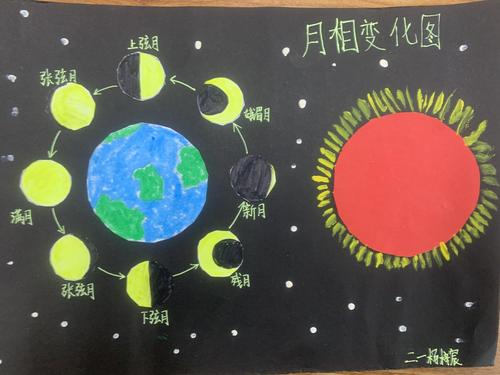 月相变化图
上弦月
张弦月
娥眉月
满月
新月
张弦月
残月
下弦月
二一杨